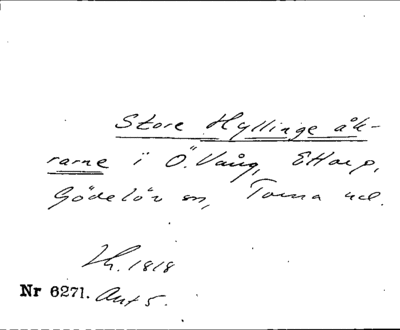 Store Hyllinge åk-
rarne i Ö. Vång, Ettarp,
Gödelöv sn, Torna hd.
Lh. 1818
Nr 6271. Akt 5.